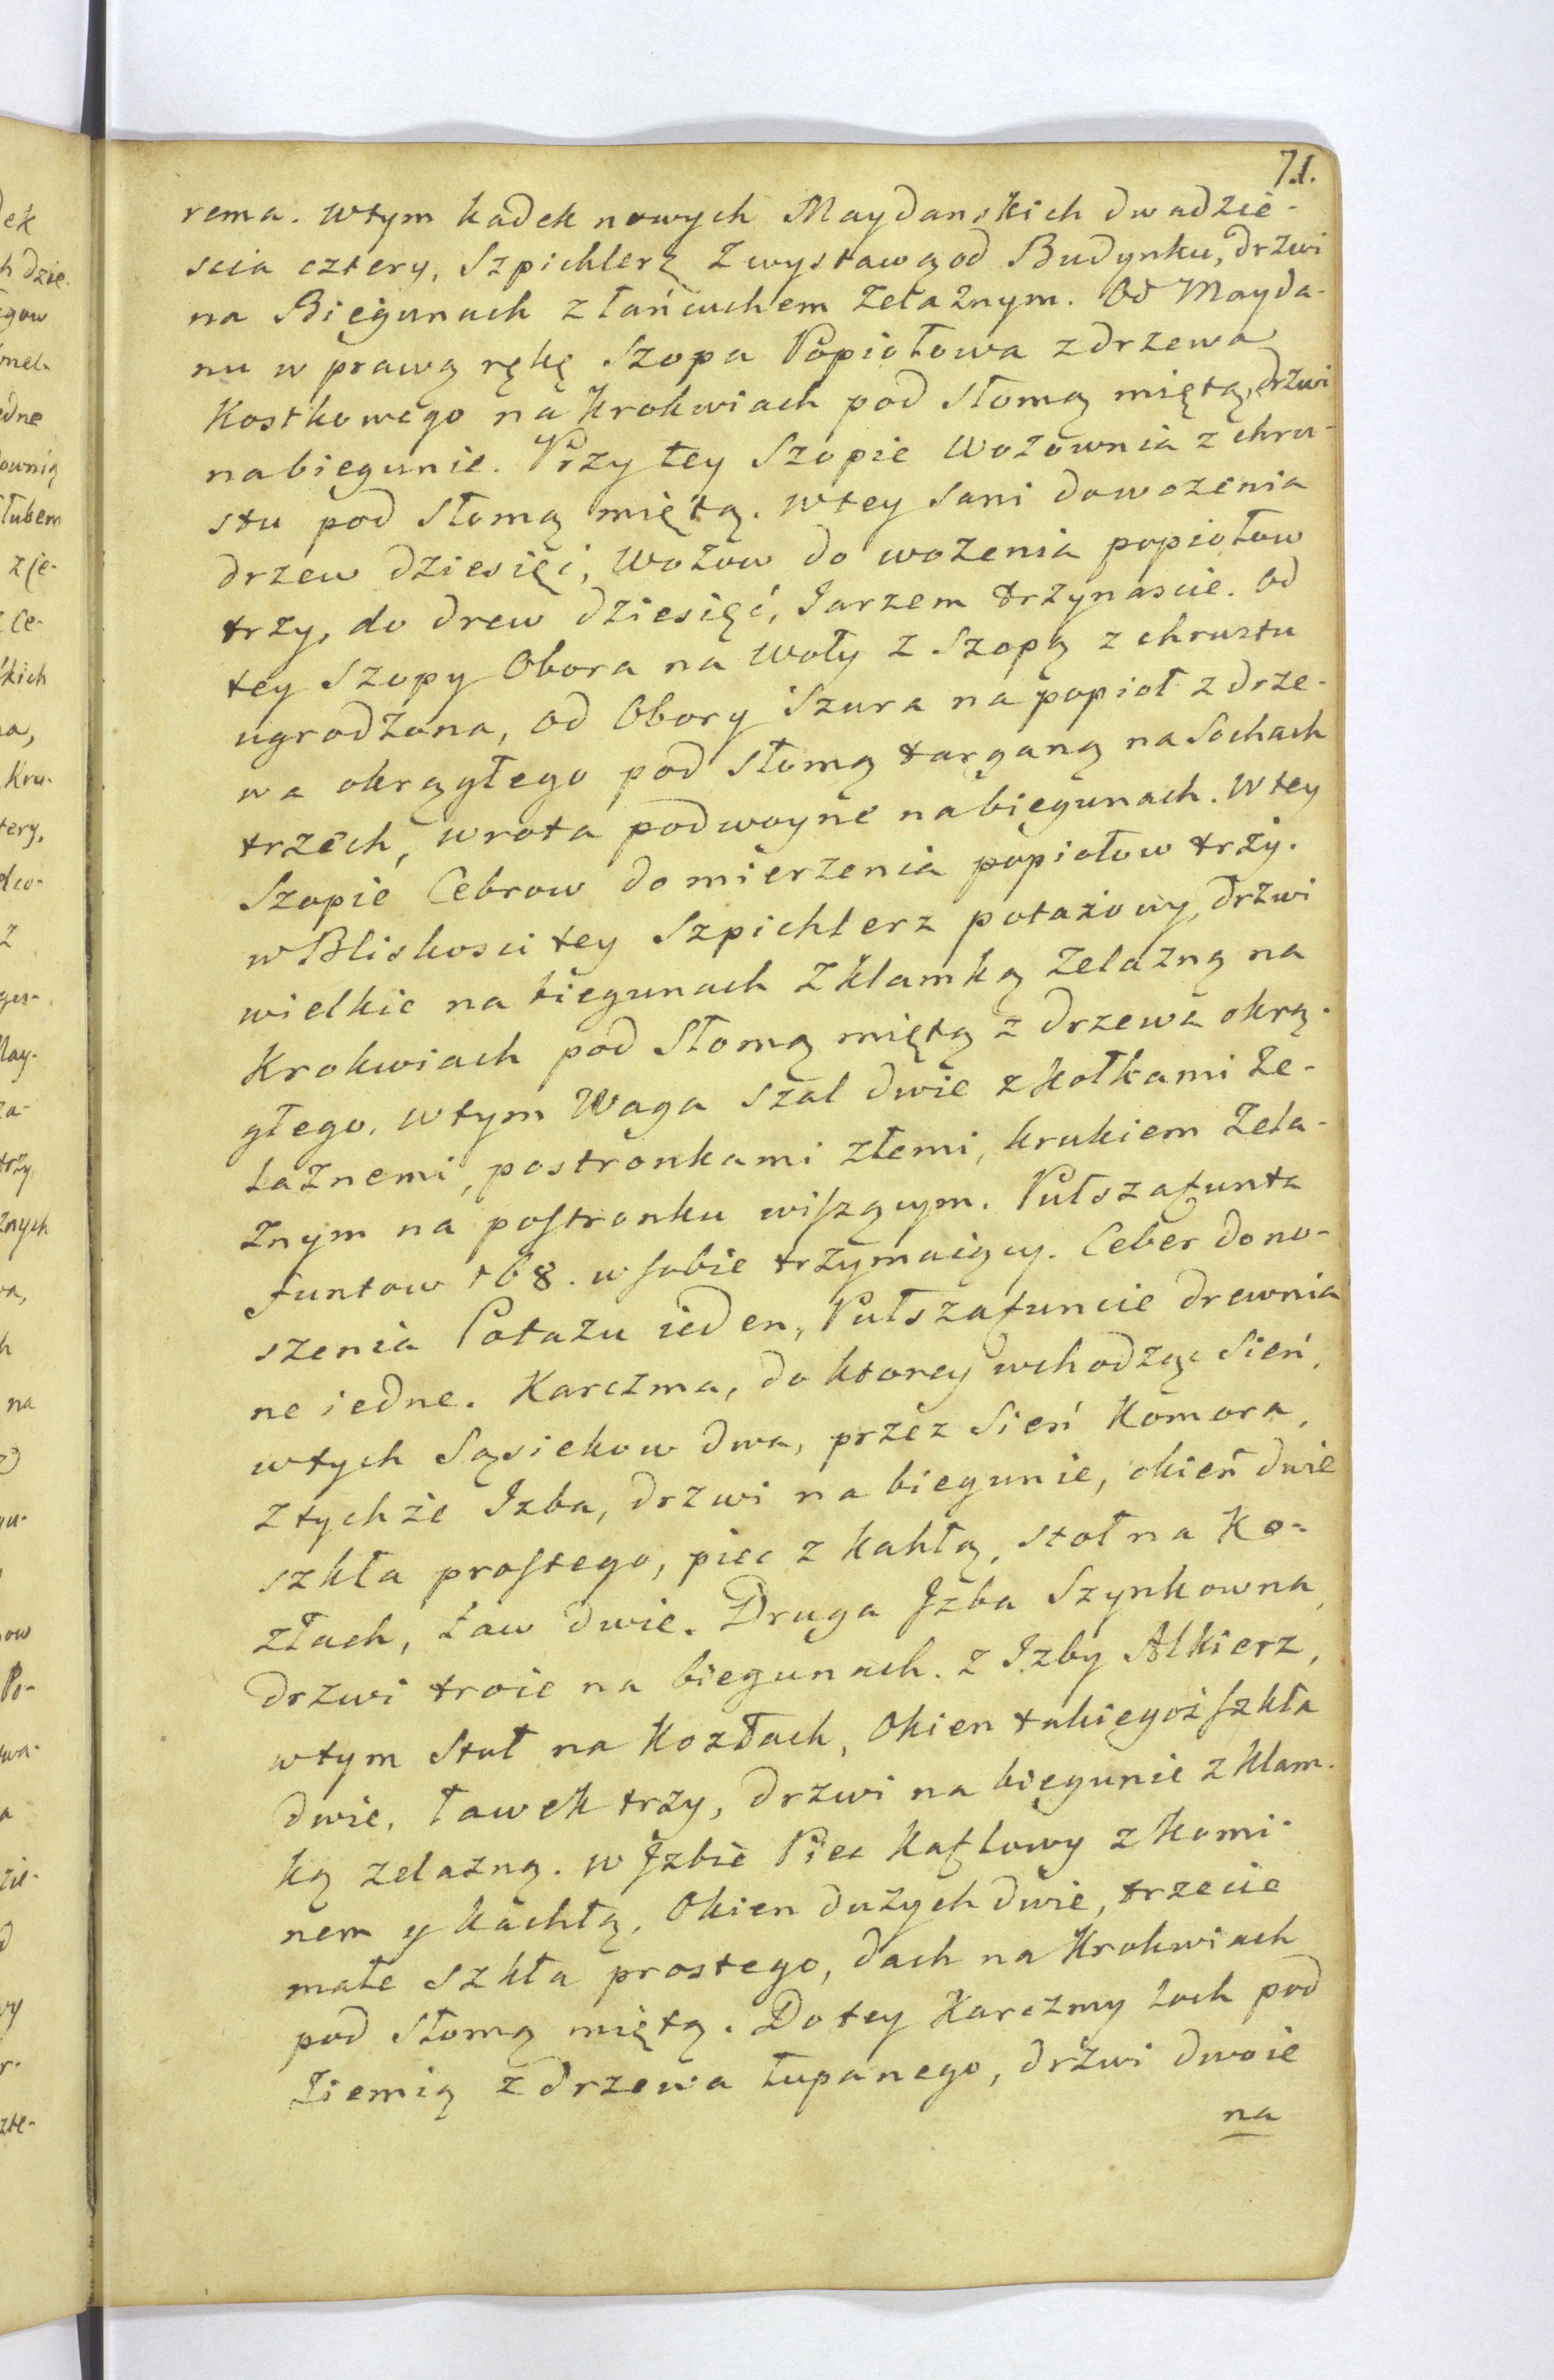 71.
rema. wtym kadek nowych Maydanskich dwadzie-
scia cztery, Szpichlerz z wystawą od Budynku, drzwi
na Biegunach z łańcuchem żelaznym. Od Mayda-
nu w prawą rękę Szopa Popiołowa z drzewa
Kostkowego na Krokwiach pod słomą miętą, drzwi
na biegunie. Przy tey Szopie Wozownia z chru-
stu pod słomą miętą. w tey Sani dowozenia
drzew dziesięć, Wozow do wozenia popiołow
trzy, do drew dziesięć, Jarzem trzynascie. Od
tey Szopy Obora na Woły z Szopą z chrustu
ugrodzona, od Obory Szura na popioł z drze-
wa okrągłego pod słomą targaną na Sochach
trzech, wrota podwoyne na biegunach. W tey
Szopie Cebrow do mierzenia popiołow trzy.
w Bliskosci tey Szpichlerz potażowy, drzwi
wielkie na biegunach z klamką żelazną na
Krokwiach pod słomą miętą z drzewa okrą-
głego. w tym Waga szal dwie z kołkami że-
laznemi, postronkami złemi, krukiem żela-
znym na postronku wiszącym. Pułszafunta
funtow 168. w sobie trzymaiący. Ceber do no-
szenia Potazu ieden, Pułszafuncie drewnia
ne iedne. Karczma, do ktorey wchodząc Sień,
w tych Sąsiekow dwa, przez Sień Komora,
z tychże Izba, drzwi na biegunie, okień dwie
szkła prostego, piec z kahłą, stoł na Ko-
złach, Ław dwie. Druga Izba Szynkowna,
drzwi troie na biegunach. z Izby Alkierz,
w tym Stoł na Kozłach, Okien takiegoż szkła
dwie, ławek trzy, drzwi na biegunie z klam-
ką zelazną. w Izbie Piec kaflowy z komi-
nem y kachłą, Okien dużych dwie, trzecie
małe szkła prostego, dach na Krokwiach
pod słomą miętą. Do tey Karczmy loch pod
Ziemią z drzewa łupanego, drzwi dwoie
na
ek
h dzie-
gow
mel-
edne
ownią
łubem
z że-
z ce-
kich
Kru-
tery,
trzy
znych
na
ow
Po-